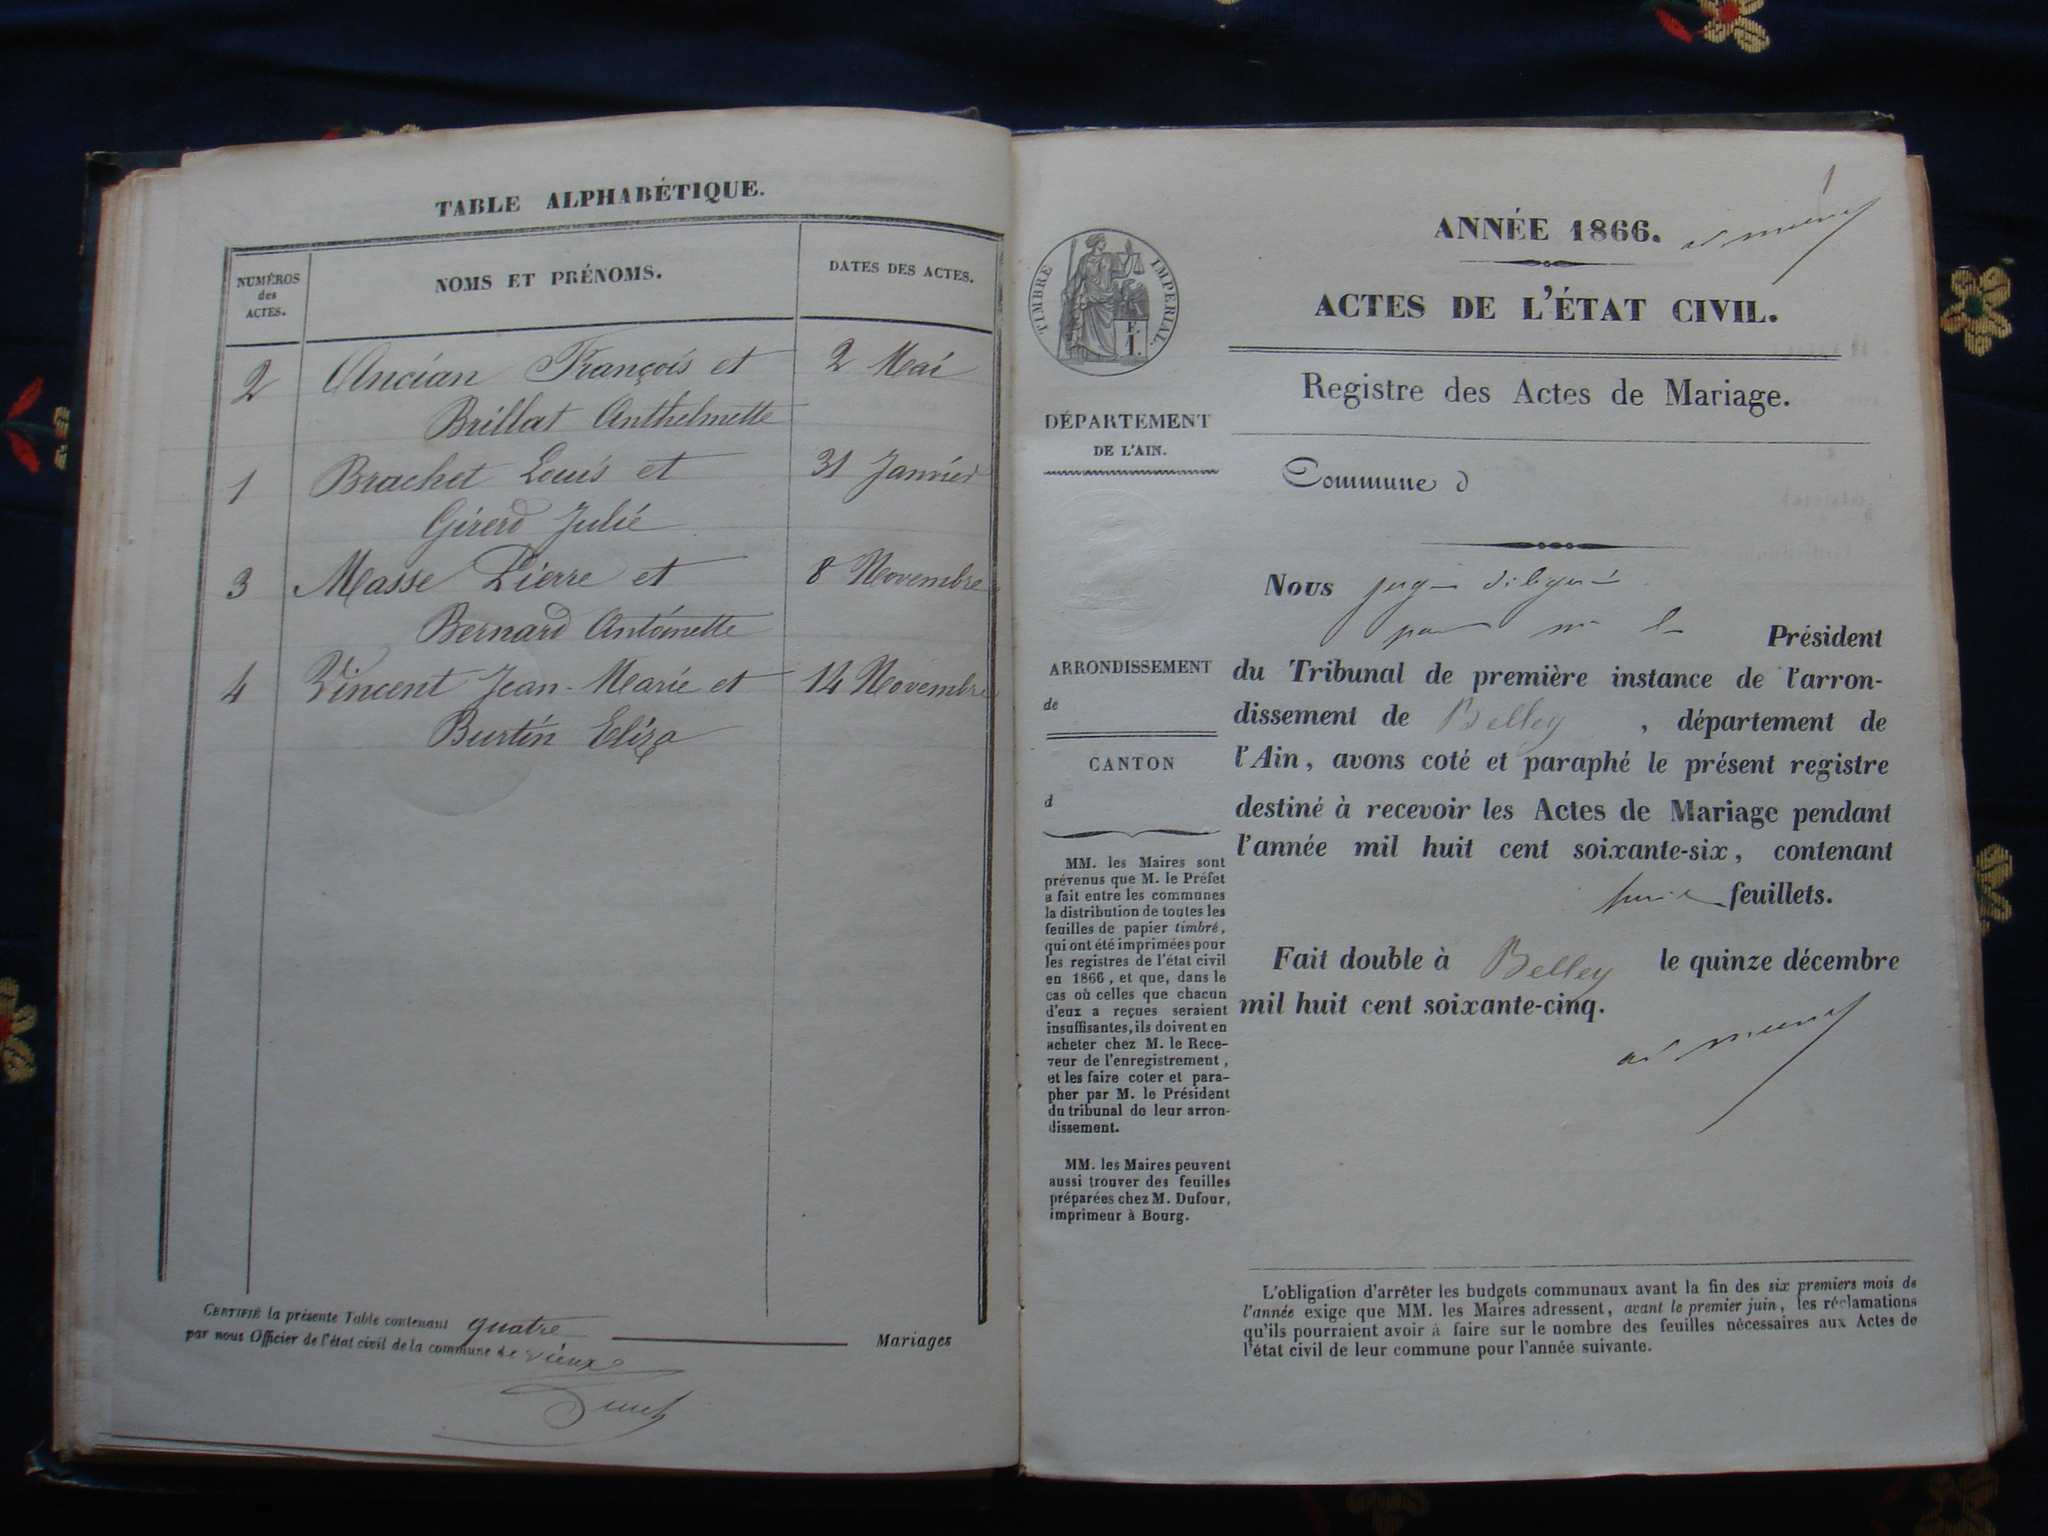 TABLE ALPHABÉTIQUE.
NUMÉROS
des
ACTES.
NOMS ET PRÉNOMS.
DATES DES ACTES.
2 Ancian François et 2 Mai
Brillat Anthelmette
1 Brachet Louis et 31 Janvier
Girerd Julie
3 Masse Pierre et 8 Novembre
Bernard Antoinette
4 Vincent Jean-Marie et 14 Novembre
Burtin Eliza
CERTIFIÉ la présente Table contenant quatre Mariages
par nous Officier de l'état civil de la commune de vieux
1
ANNÉE 1866.
ACTES DE L'ÉTAT CIVIL.
TIMBRE IMPERIAL.
F.
1.
Registre des Actes de Mariage.
DÉPARTEMENT
DE L'AIN.
Commune d
Nous juge délégué
pour Mr le Président
ARRONDISSEMENT
de
CANTON
d
du Tribunal de première instance de l'arron-
dissement de Belley, département de
l'Ain, avons coté et paraphé le présent registre
destiné à recevoir les Actes de Mariage pendant
l'année mil huit cent soixante-six, contenant
feuillets.
Fait double à Belley le quinze décembre
mil huit cent soixante-cinq.
MM. les Maires sont
prévenus que M. le Préfet
a fait entre les communes
la distribution de toutes les
feuilles de papier timbré,
qui ont été imprimées pour
les registres de l'état civil
en 1866, et que, dans le
cas où celles que chacun
d'eux a reçues seraient
insuffisantes, ils doivent en
acheter chez M. le Rece-
veur de l'enregistrement,
et les faire coter et para-
pher par M. le Président
du tribunal de leur arron-
dissement.
MM. les Maires peuvent
aussi trouver des feuilles
préparées chez M. Dufour,
imprimeur à Bourg.
L'obligation d'arrêter les budgets communaux avant la fin des six premiers mois de
l'année exige que MM. les Maires adressent, avant le premier juin, les réclamations
qu'ils pourraient avoir à faire sur le nombre des feuilles nécessaires aux Actes de
l'état civil de leur commune pour l'année suivante.